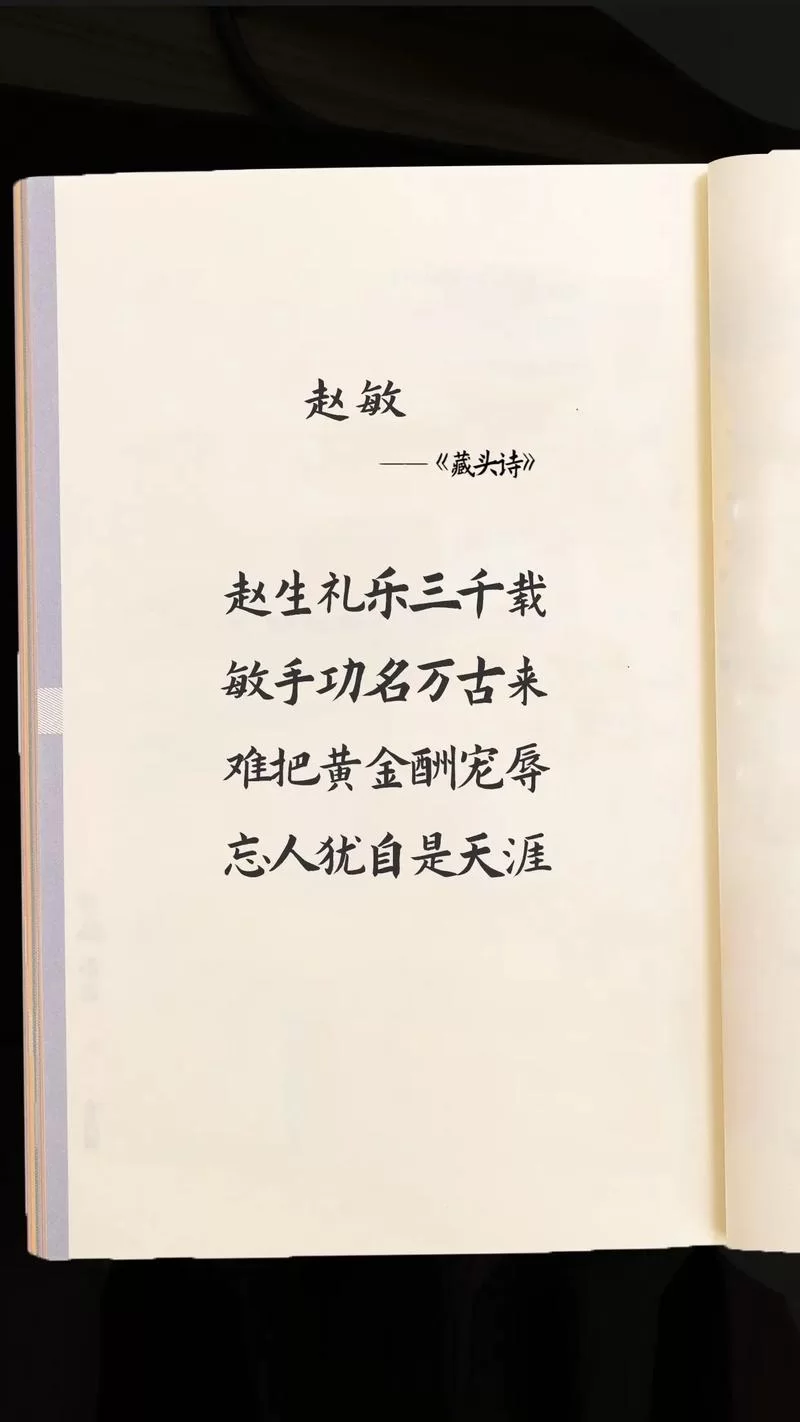 赵敏
——《藏头诗》
赵生礼乐三千载
敏手功名万古来
难把黄金酬宠辱
忘人犹自是天涯